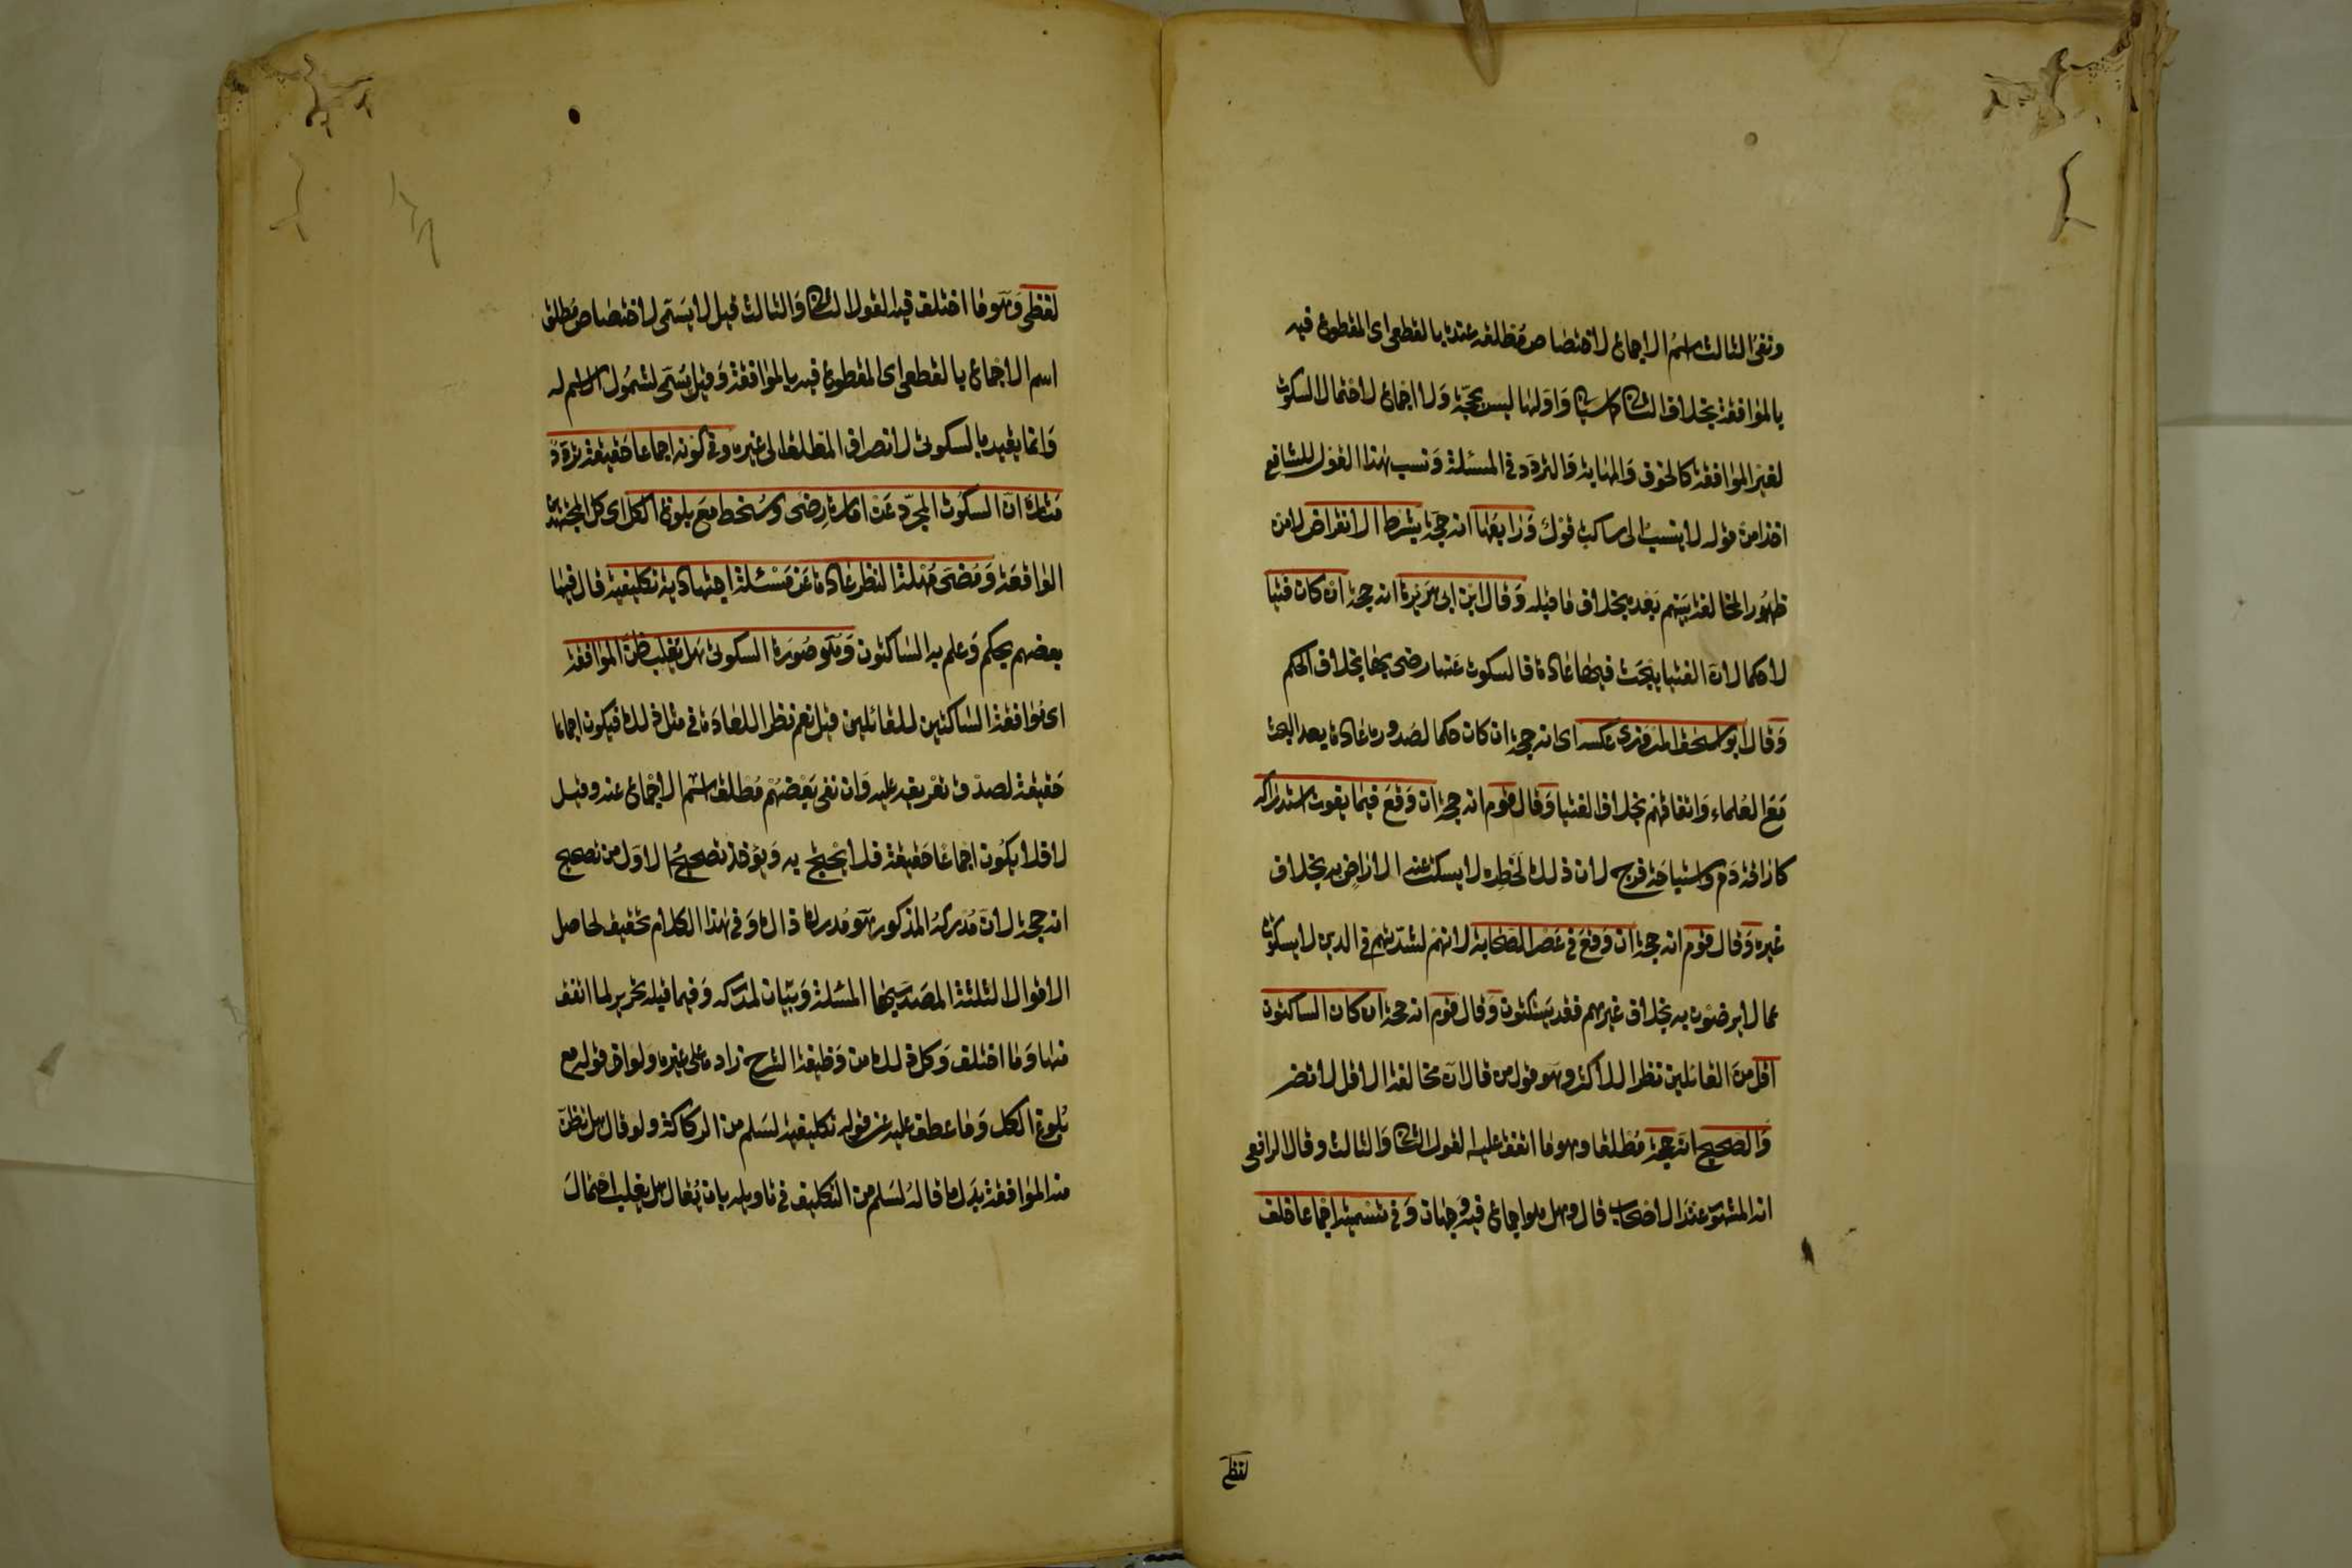 ونفى الثالث اسم الاجماع لاختصاص مطلقه عنده بالقطعى اى المقطوع فيه
بالموافقة بخلاف الثانى كما سيأتى وَاوّلها ليس بحجّة وَلا اجماع لاحتمال السكوت
لغير الموافقة كالخوف وَالمهابة وَالتردّد فى المسئلة وَنسب هذا القول للشافعى
اخذا من قوله لا ينسب الى ساكت قول وَرابعها انه حجة بشرط الانقراض لامن
ظهور المخالفة بينهم بعده بخلاف ما قبله وَقال ابن ابى هريرة انه حجة ان كان فتيا
لا حكما لانّ الفتيا يبحث فيها عادة فالسكوت عنها رضى بها بخلاف الحكم
وَقال ابو اسحق المروزى عكسه اى انه حجة ان كان حكما لصدوره عادة بعد البحث
مع العلماء وَاتفاقهم بخلاف الفتيا وَقال قوم انه حجة ان وَقع فيما يفوت استدراكه
كاراقة دم وَاستباحة فرج لان ذلك لخطره لا يسكت عنه الا راض به بخلاف
غيره وَقال قوم انه حجة ان وَقع فى عصر الصحابة لانهم لشدتهم فى الدين لا يسكتون
عما لا يرضون به بخلاف غيرهم فقد يسكتون وَقال قوم انه حجة ان كان الساكتون
اقل من القائلين نظرا للاكثر وهو قول من قال ان مخالفة الاقل لا تضر
وَالصحيح انه حجة مطلقا وهو ما اتفق عليه القول الثانى وَالثالث وقال الرافعى
انه المشهور عند الاصحاب قال وهل هو اجماع فيه وجهان وَفى تسميته اجماعا خلف
لفظى
لفظى وَهو ما اختلف فيه القول الثانى وَالثالث قيل لا يسمّى لاختصاص مطلق
اسم الاجماع بالقطعى اى المقطوع فيه بالموافقة وَقيل يسمّى لشمول الاسم له
وَانما يقيد بالسكوتى لانصراف المطلق الى غيره وَفى كونه اجماعا حقيقة تردد
مثاره انّ السكوت المجرّد عن امارة رضى وسخط مع بلوغ الكل اى كل المجتهدين
الواقعة وَمضى مهلة النظر عادة عن مسئلة اجتهادية تكليفية قال فيها
بعضهم بحكم وَعلم به الساكتون وَهو صورة السكوتى هل يغلب ظنّ الموافقة
اى موافقة الساكتين للقائلين قيل نعم نظرا للعادة فى مثل ذلك فيكون اجماعا
حقيقة لصدق تعريفه عليه وَان نفى بعضهم مطلق اسم الاجماع عنه وقيل
لا فلا يكون اجماعا حقيقة فلا يحتج به وَيؤخذ تصحيح الاول من تصحيح
انه حجة لانّ مدركه المذكور هو مدرك ذاك وَفى هذا الكلام تحقيق لحاصل
الاقوال الثلثة المصدّر بها المسئلة وَبيان لمدركه وَفيما قبله تحرير لما اتفق
منها وَما اختلف وَكل ذلك من وَظيفة الشرح زاده على غيره ولو اخر قوله مع
بلوغ الكل وَما عطف عليه عن قوله تكليفية لسلم من الركاكة ولو قال هل يظنّ
منه الموافقة بدل ما قاله لسلم من التكليف فى تاويله بان يقال هل يغلب احتمال